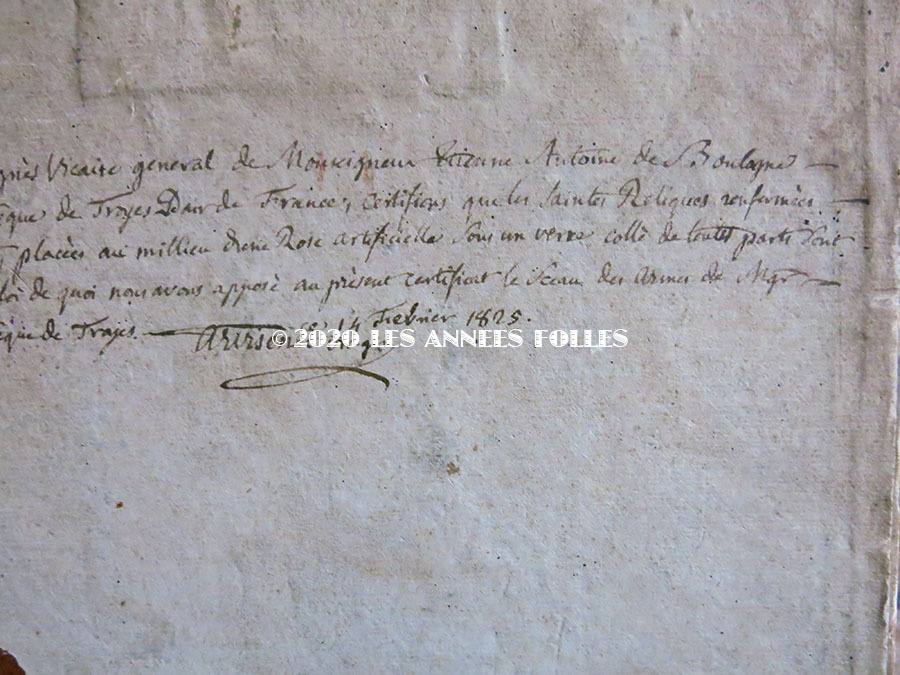 gnès Vicaire general de Monseigneur Etienne Antoine de Boulogne —
êque de Troyes Pair de France, certifions que les Saintes Reliques renfermées —
placées au millieu d'une Rose artificielle sous un verre collé de toutes parts sont
foi de quoi nous avons apposé au présent certificat le Sceau des armes de Mgr —
êque de Troyes. — 14 Fevrier 1825.
© 2020 LES ANNEES FOLLES